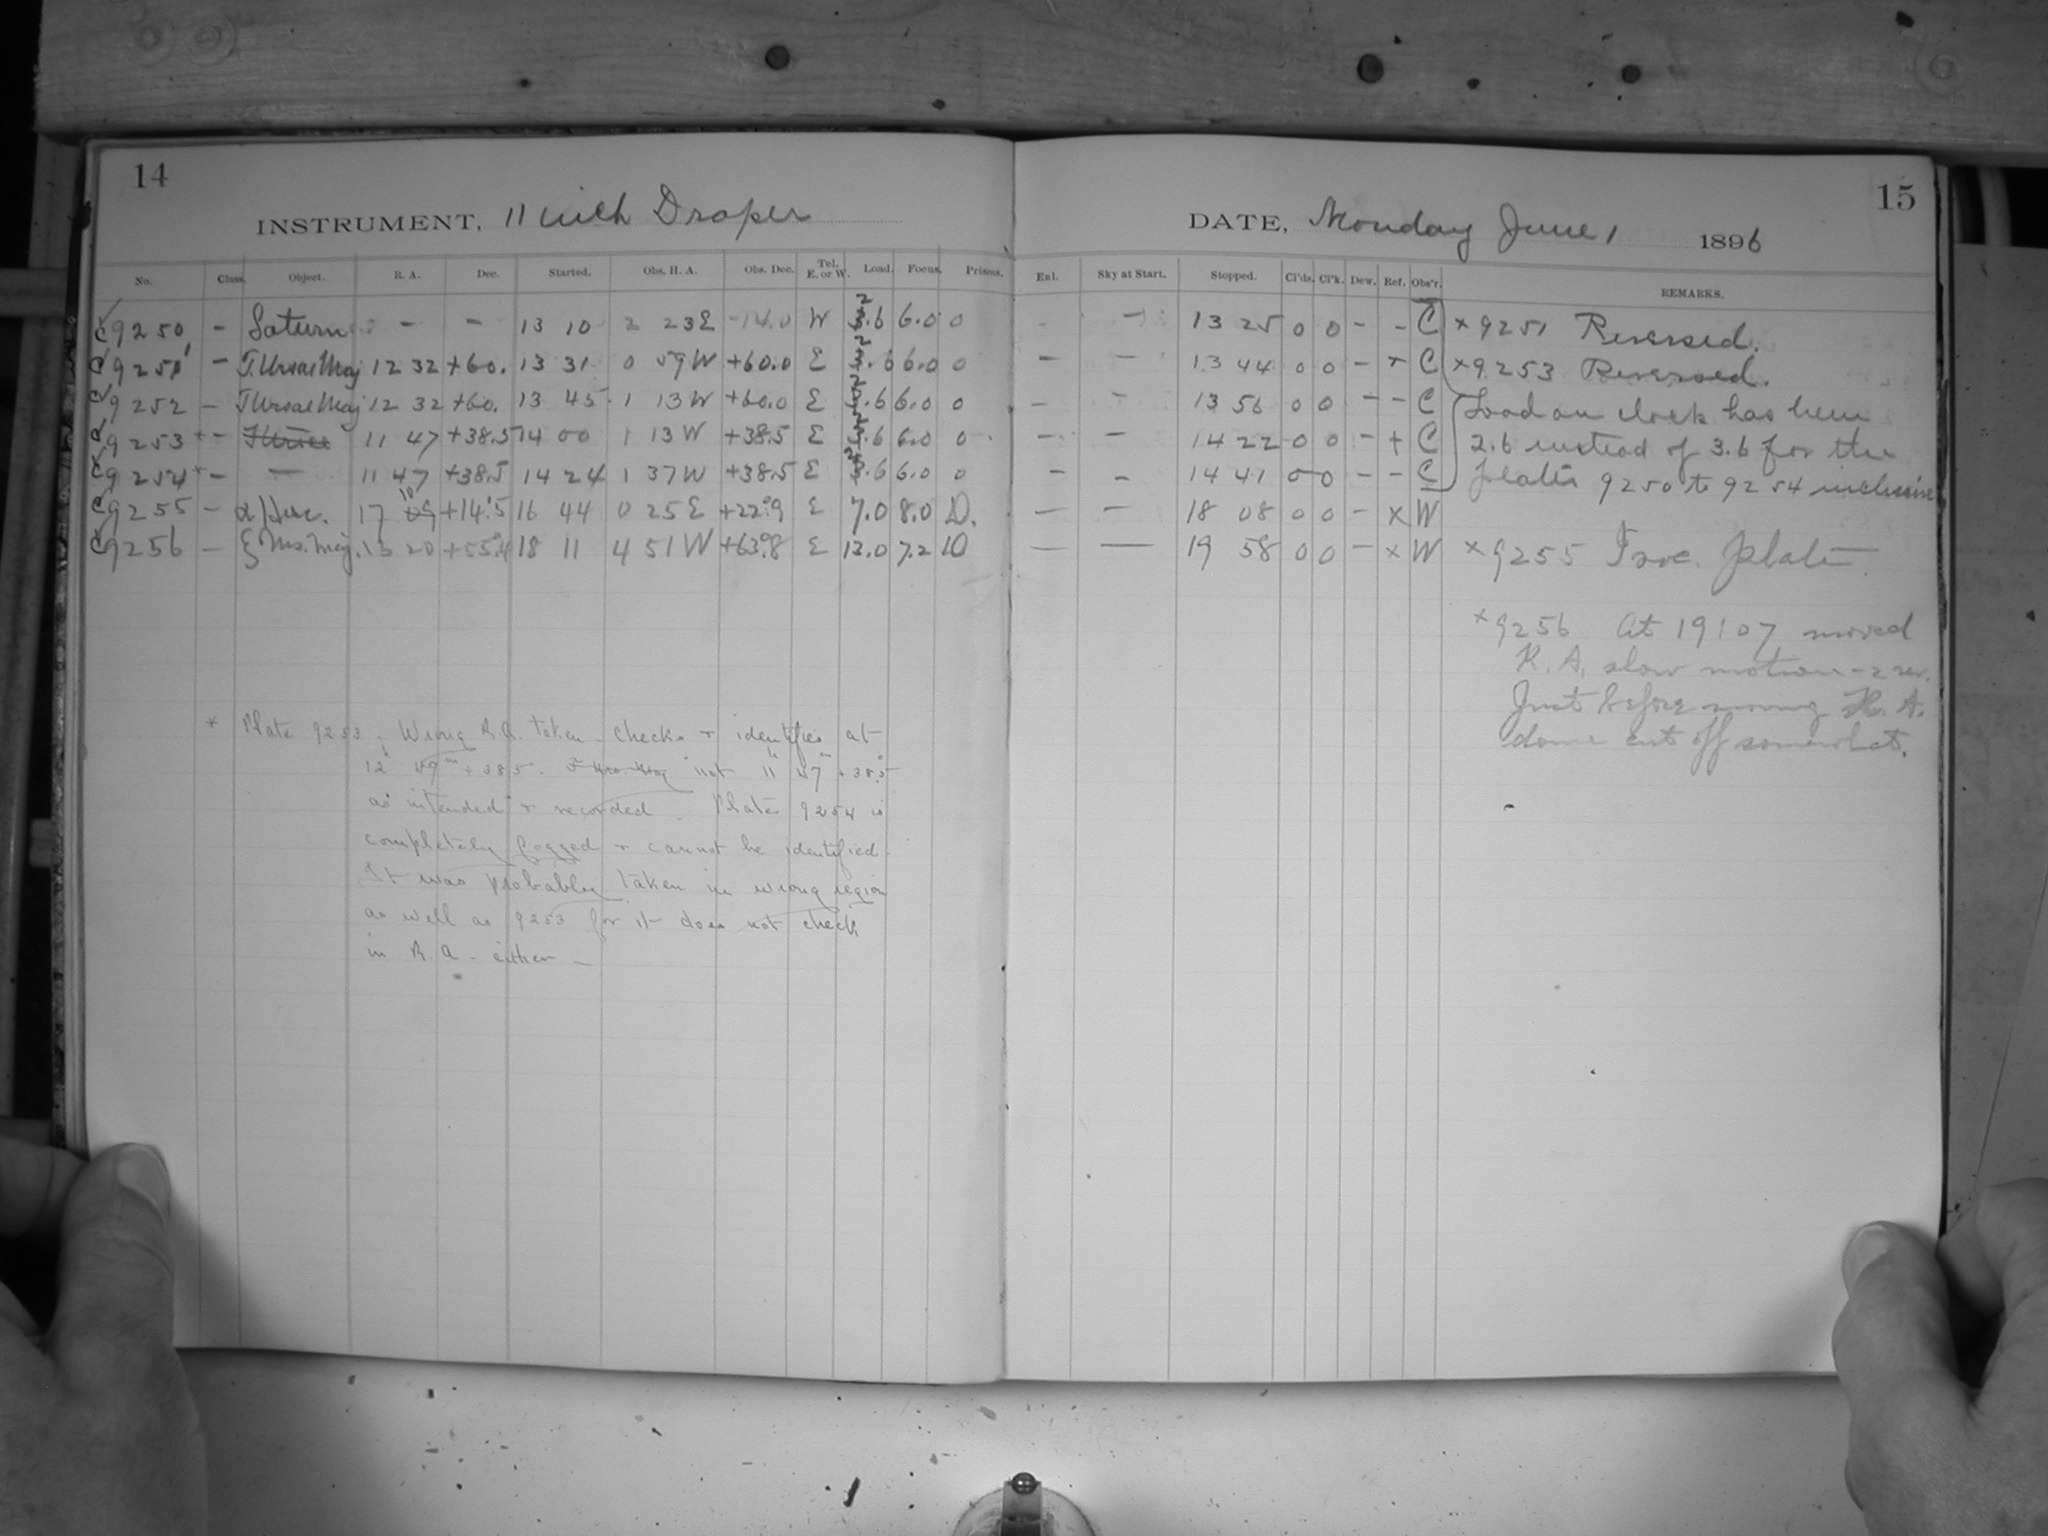 14
INSTRUMENT, 11 inch Draper
No. Class. Object. R. A. Dec. Started. Obs. H. A. Obs. Dec. Tel. E. or W. Load. Focus. Prisms.
C 9250 - Saturn - - 13 10 2 23 E -14.0 W 2.6 6.0 0
C 9251 - T. Ursae Maj 12 32 +60. 13 31 0 59 W +60.0 E 2.6 6.0 0
C 9252 - T Ursae Maj 12 32 +60. 13 45 1 13 W +60.0 E 2.6 6.0 0
C 9253 * - 11 47 +38.5 14 00 1 13 W +38.5 E 2.6 6.0 0
C 9254 * - - 11 47 +38.5 14 24 1 37 W +38.5 E 2.6 6.0 0
C 9255 - α Herc. 17 10 +14.5 16 44 0 25 E +22.9 E 7.0 8.0 D.
C 9256 - ξ Urs. Maj. 13 20 +55.4 18 11 4 51 W +63.8 E 12.0 7.2 D
* Plate 9253. Wrong R.A. taken - checks & identifies at
12h 49m +38.5. not 11h 47m +38.5
as intended & recorded. Plate 9254 is
completely fogged & cannot be identified.
It was probably taken in wrong region
as well as 9253 for it does not check
in R.A. either -
15
DATE, Monday June 1 1896
Enl. Sky at Start. Stopped. Cl'ds. Cl'k. Dew. Ref. Obs'r. REMARKS.
- - 13 25 0 0 - - C × 9251 Reversed.
- - 13 44 0 0 - + C × 9253 Reversed.
- - 13 56 0 0 - - C Load on clock has been
- - 14 22 0 0 - + C 2.6 instead of 3.6 for the
- - 14 41 0 0 - - C plates 9250 to 9254 inclusive
- - 18 08 0 0 - × W
- - 19 58 0 0 - × W × 9255 Iso. plate.
× 9256 At 19:07 moved
R. A. slow motion - 2 rev.
Just before moving R. A.
dome cut off somewhat.